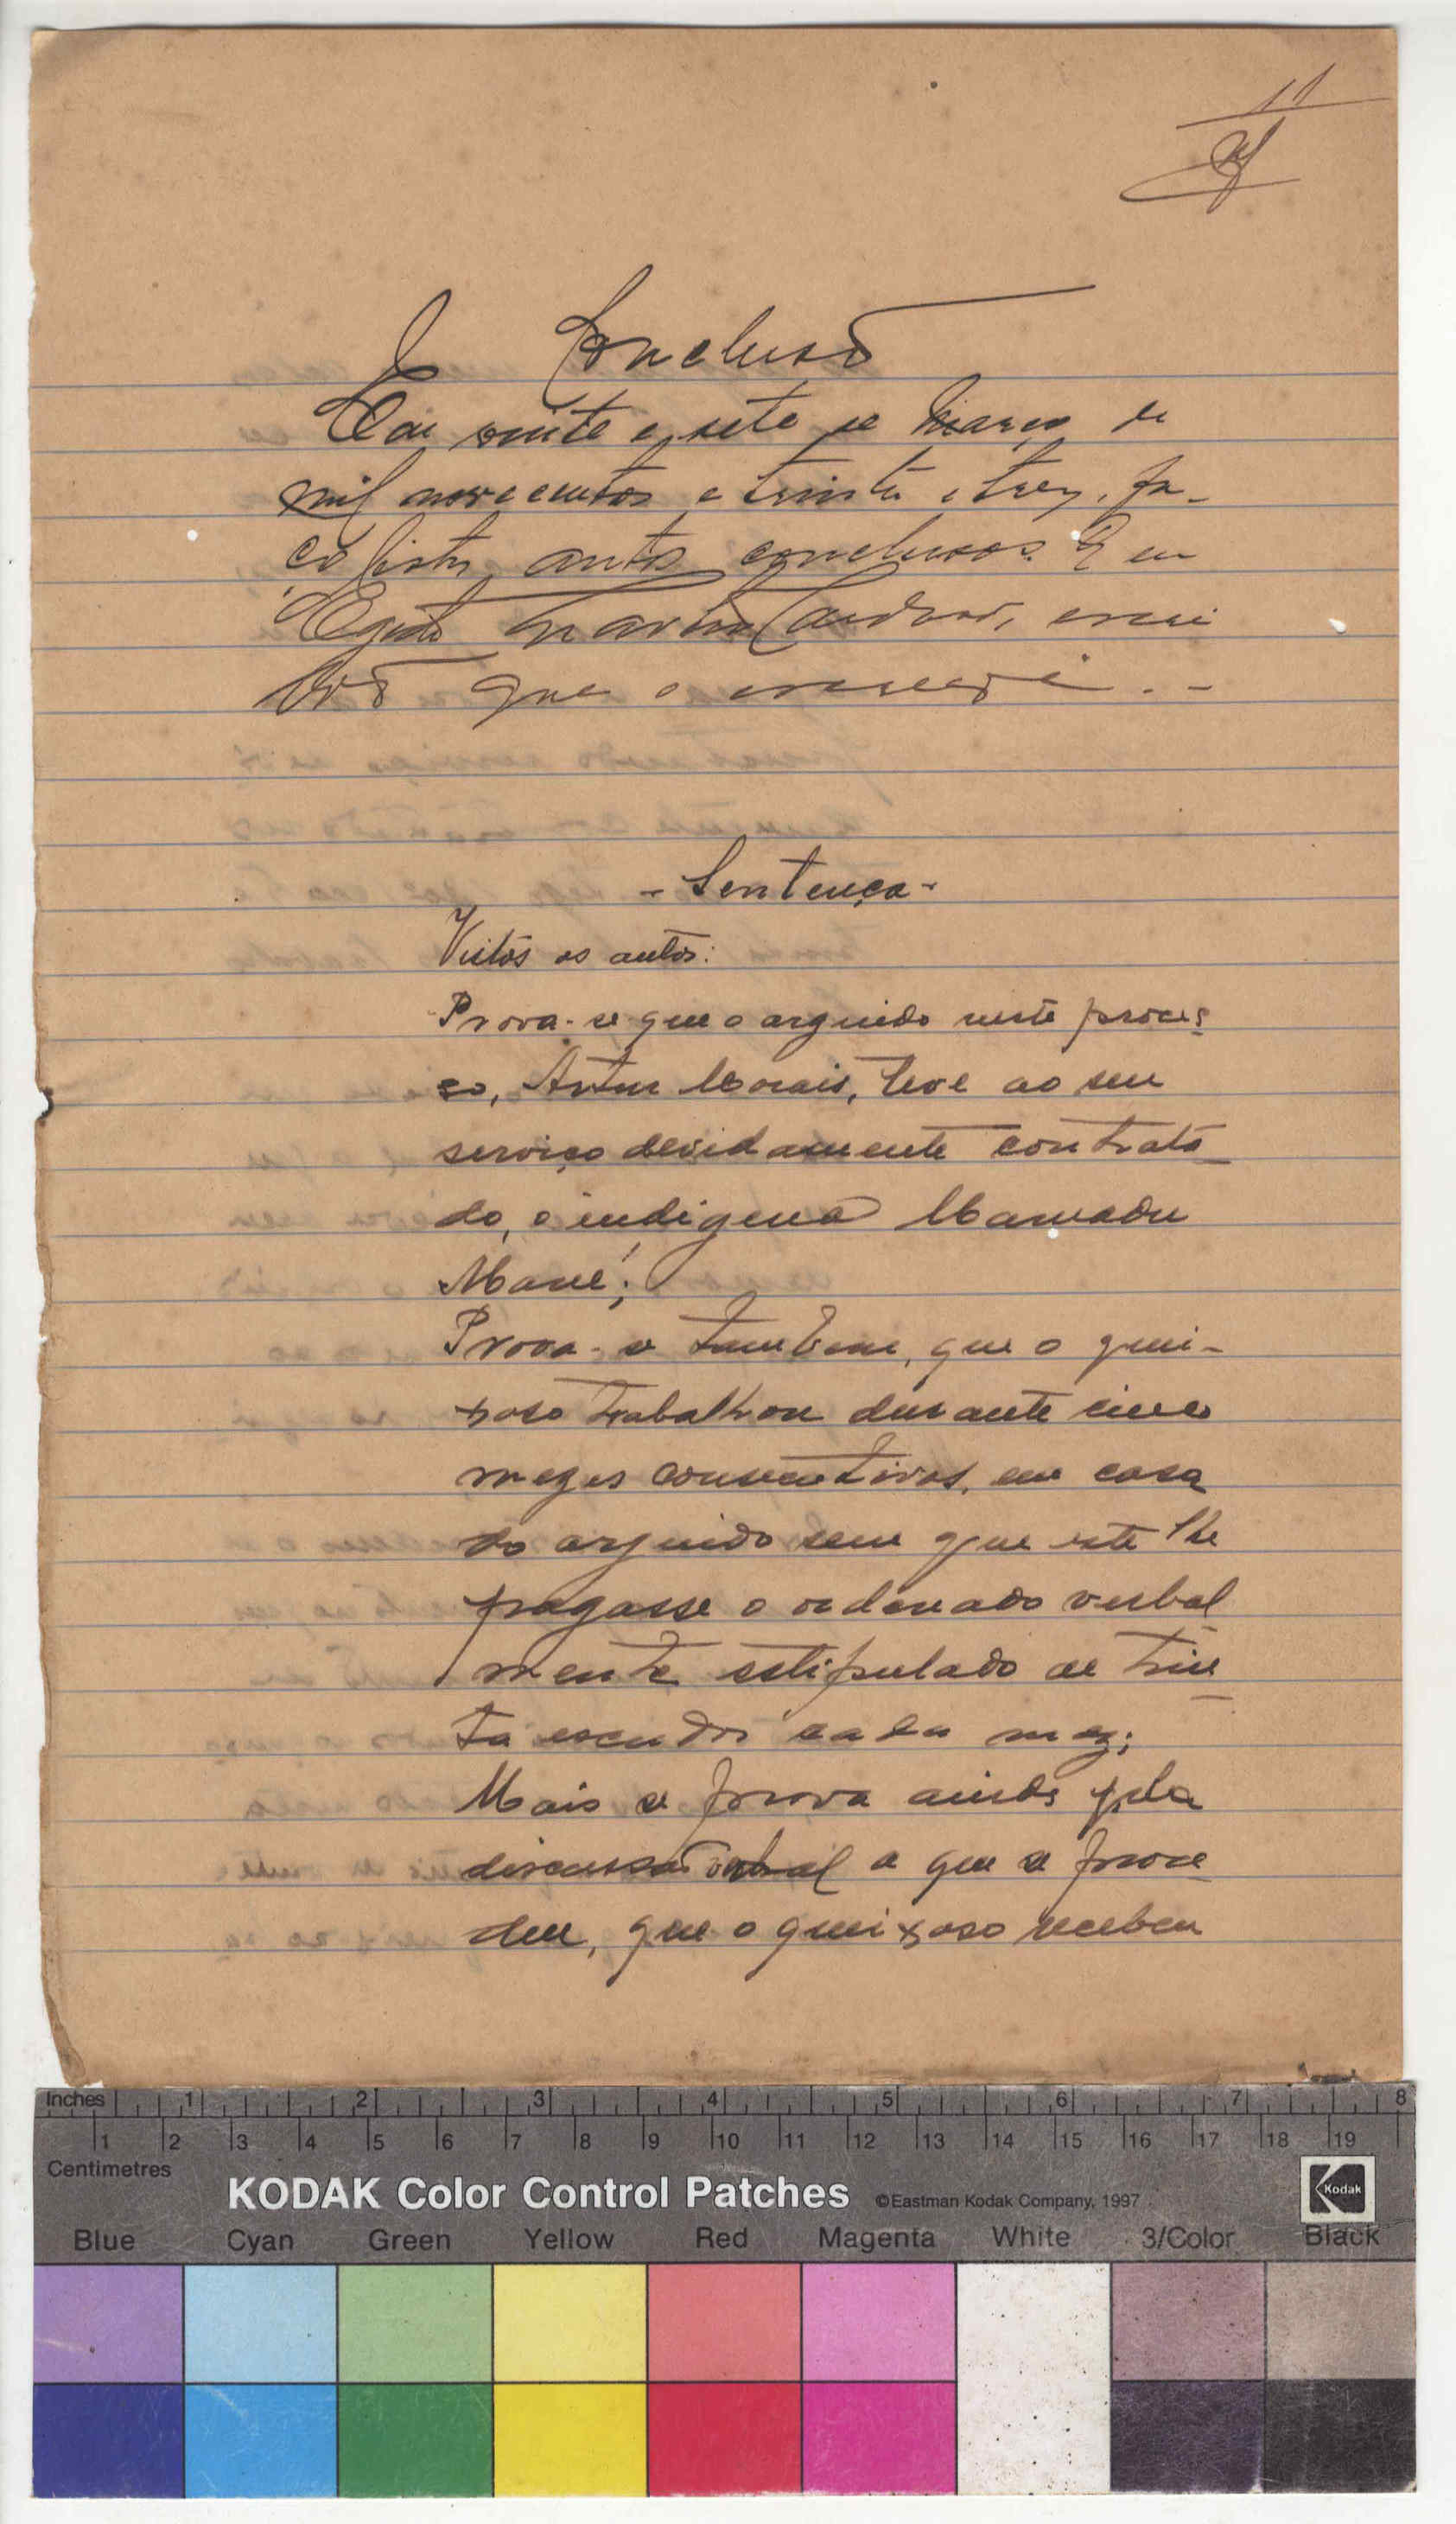 11
Conclusão
Em vinte e sete de Março de
mil novecentos e trinta e tres, fa-
ço estes autos conclusos. E eu
Egidio Cardoso, escri
vão que o escrevi. -
- Sentença -
Vistos os autos:
Prova-se que o arguido neste proces
so, Artur Morais, teve ao seu
serviço devidamente contrata
do, o indigena Mamadu
Mané;
Prova-se tambem, que o quei-
xoso trabalhou durante cinco
mezes consecutivos, em casa
do arguido sem que este lhe
pagasse o ordenado verbal
mente estipulado de trin
ta escudos cada mez;
Mais se prova ainda pela
discussão verbal a que se proce
deu, que o queixoso recebeu
Inches 1 2 3 4 5 6 7 8
1 2 3 4 5 6 7 8 9 10 11 12 13 14 15 16 17 18 19
Centimetres
KODAK Color Control Patches ©Eastman Kodak Company, 1997 Kodak
Blue Cyan Green Yellow Red Magenta White 3/Color Black